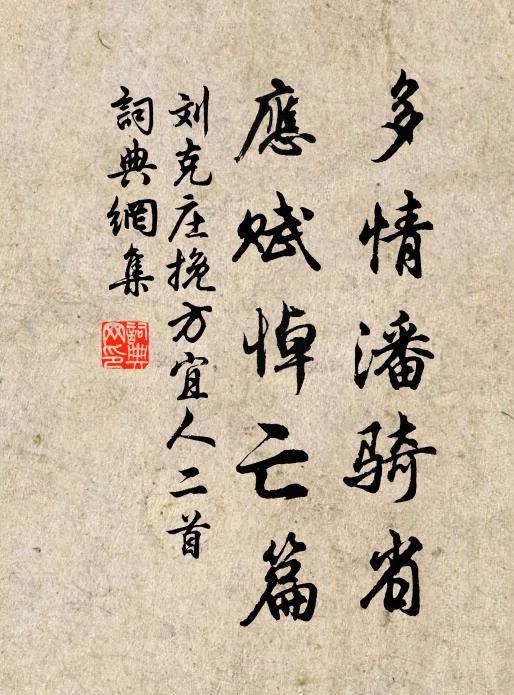 多情潘骑省
應賦悼亡篇
刘克庄挽方宜人二首
詞典網集
詞典网印